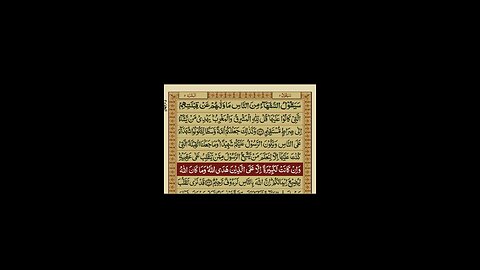 سَيَقُولُ السُّفَهَآءُ مِنَ النَّاسِ مَا وَلّٰىهُمْ عَنْ قِبْلَتِهِمُ
الَّتِيْ كَانُوْا عَلَيْهَا ؕ قُلْ لِّلّٰهِ الْمَشْرِقُ وَالْمَغْرِبُ ؕ يَهْدِيْ مَنْ يَّشَآءُ
اِلٰى صِرَاطٍ مُّسْتَقِيْمٍ وَكَذٰلِكَ جَعَلْنٰكُمْ اُمَّةً وَّسَطًا لِّتَكُوْنُوْا شُهَدَآءَ
عَلَى النَّاسِ وَيَكُوْنَ الرَّسُوْلُ عَلَيْكُمْ شَهِيْدًا ؕ وَمَا جَعَلْنَا الْقِبْلَةَ الَّتِيْ
كُنْتَ عَلَيْهَآ اِلَّا لِنَعْلَمَ مَنْ يَّتَّبِعُ الرَّسُوْلَ مِمَّنْ يَّنْقَلِبُ عَلٰى عَقِبَيْهِ
وَاِنْ كَانَتْ لَكَبِيْرَةً اِلَّا عَلَى الَّذِيْنَ هَدَى اللّٰهُ ؕ وَمَا كَانَ اللّٰهُ
لِيُضِيْعَ اِيْمَانَكُمْ ؕ اِنَّ اللّٰهَ بِالنَّاسِ لَرَءُوْفٌ رَّحِيْمٌ قَدْ نَرٰى تَقَلُّبَ